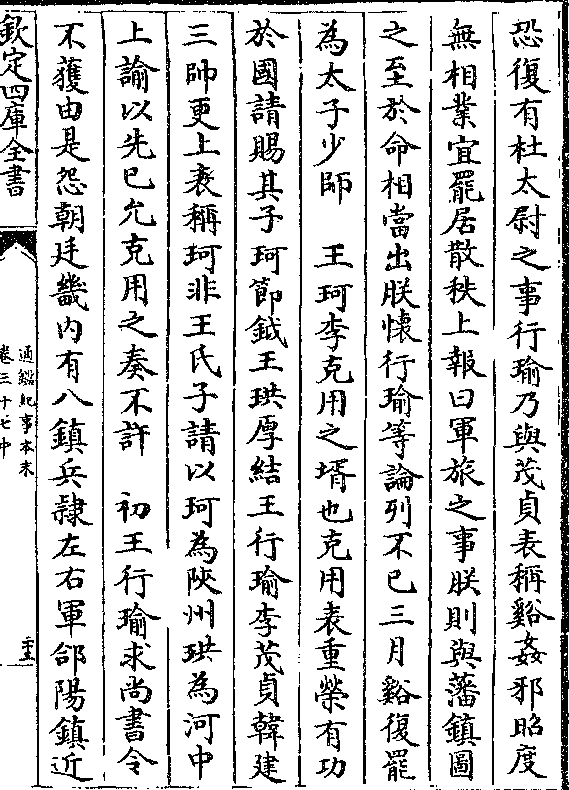 恐復有杜太尉之事行瑜乃與茂貞表稱谿姦邪昭度
無相業宜罷居散秩上報曰軍旅之事朕則與藩鎮圖
之至於命相當出朕懷行瑜等論列不已三月谿復罷
為太子少師　王珂李克用之壻也克用表重榮有功
於國請賜其子珂節鉞王珙厚結王行瑜李茂貞韓建
三帥更上表稱珂非王氏子請以珂為陜州珙為河中
上諭以先已允克用之奏不許　初王行瑜求尚書令
不獲由是怨朝廷畿内有八鎮兵隷左右軍郃陽鎮近
欽定四庫全書
通鑑紀事本末
卷三十七中